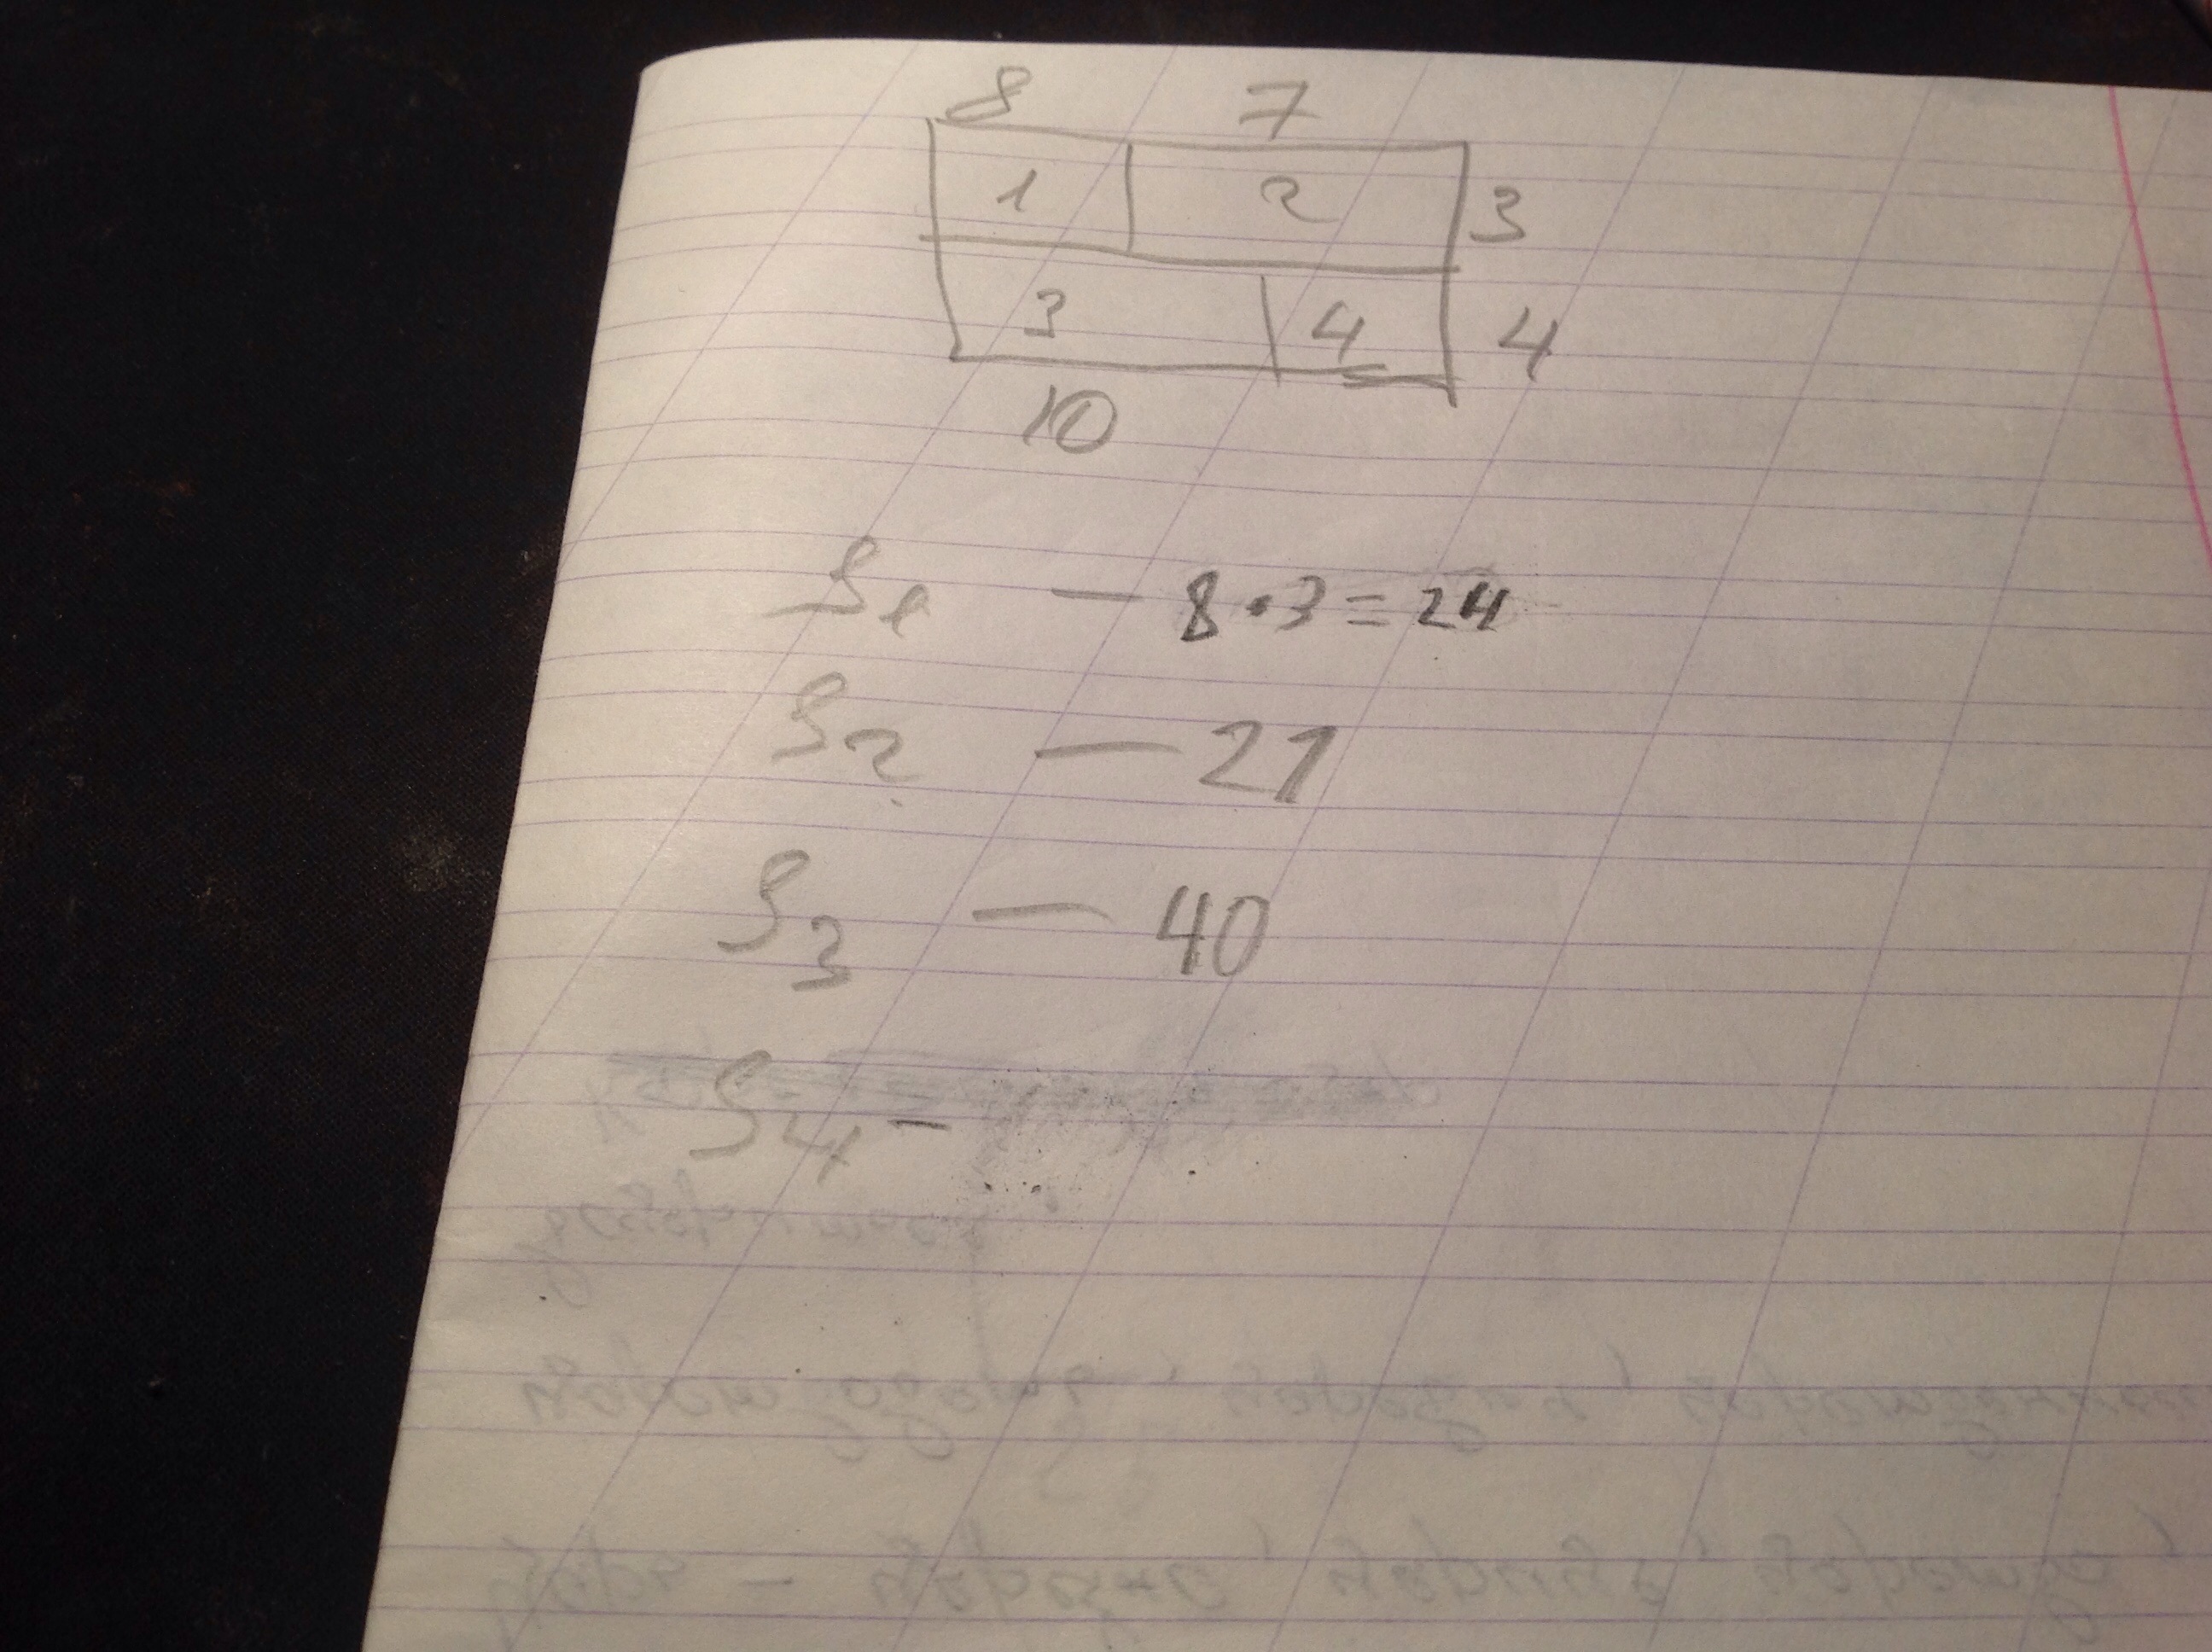 8 7
1 2 3
3 4 4
10
S1 — 8·3=24
S2 — 21
S3 — 40
S4 -